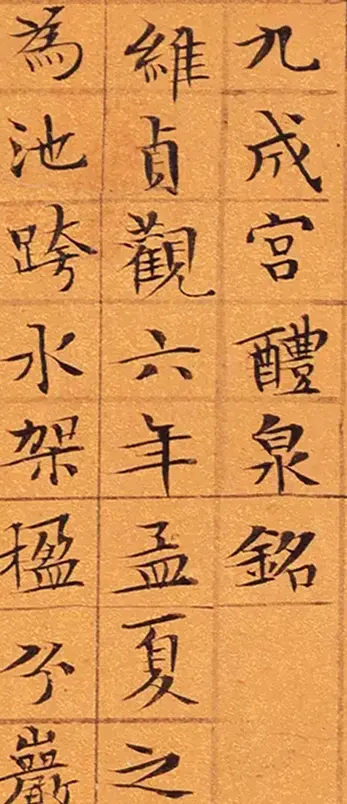 九成宮醴泉銘
維貞觀六年孟夏之
為池跨水架楹分巖